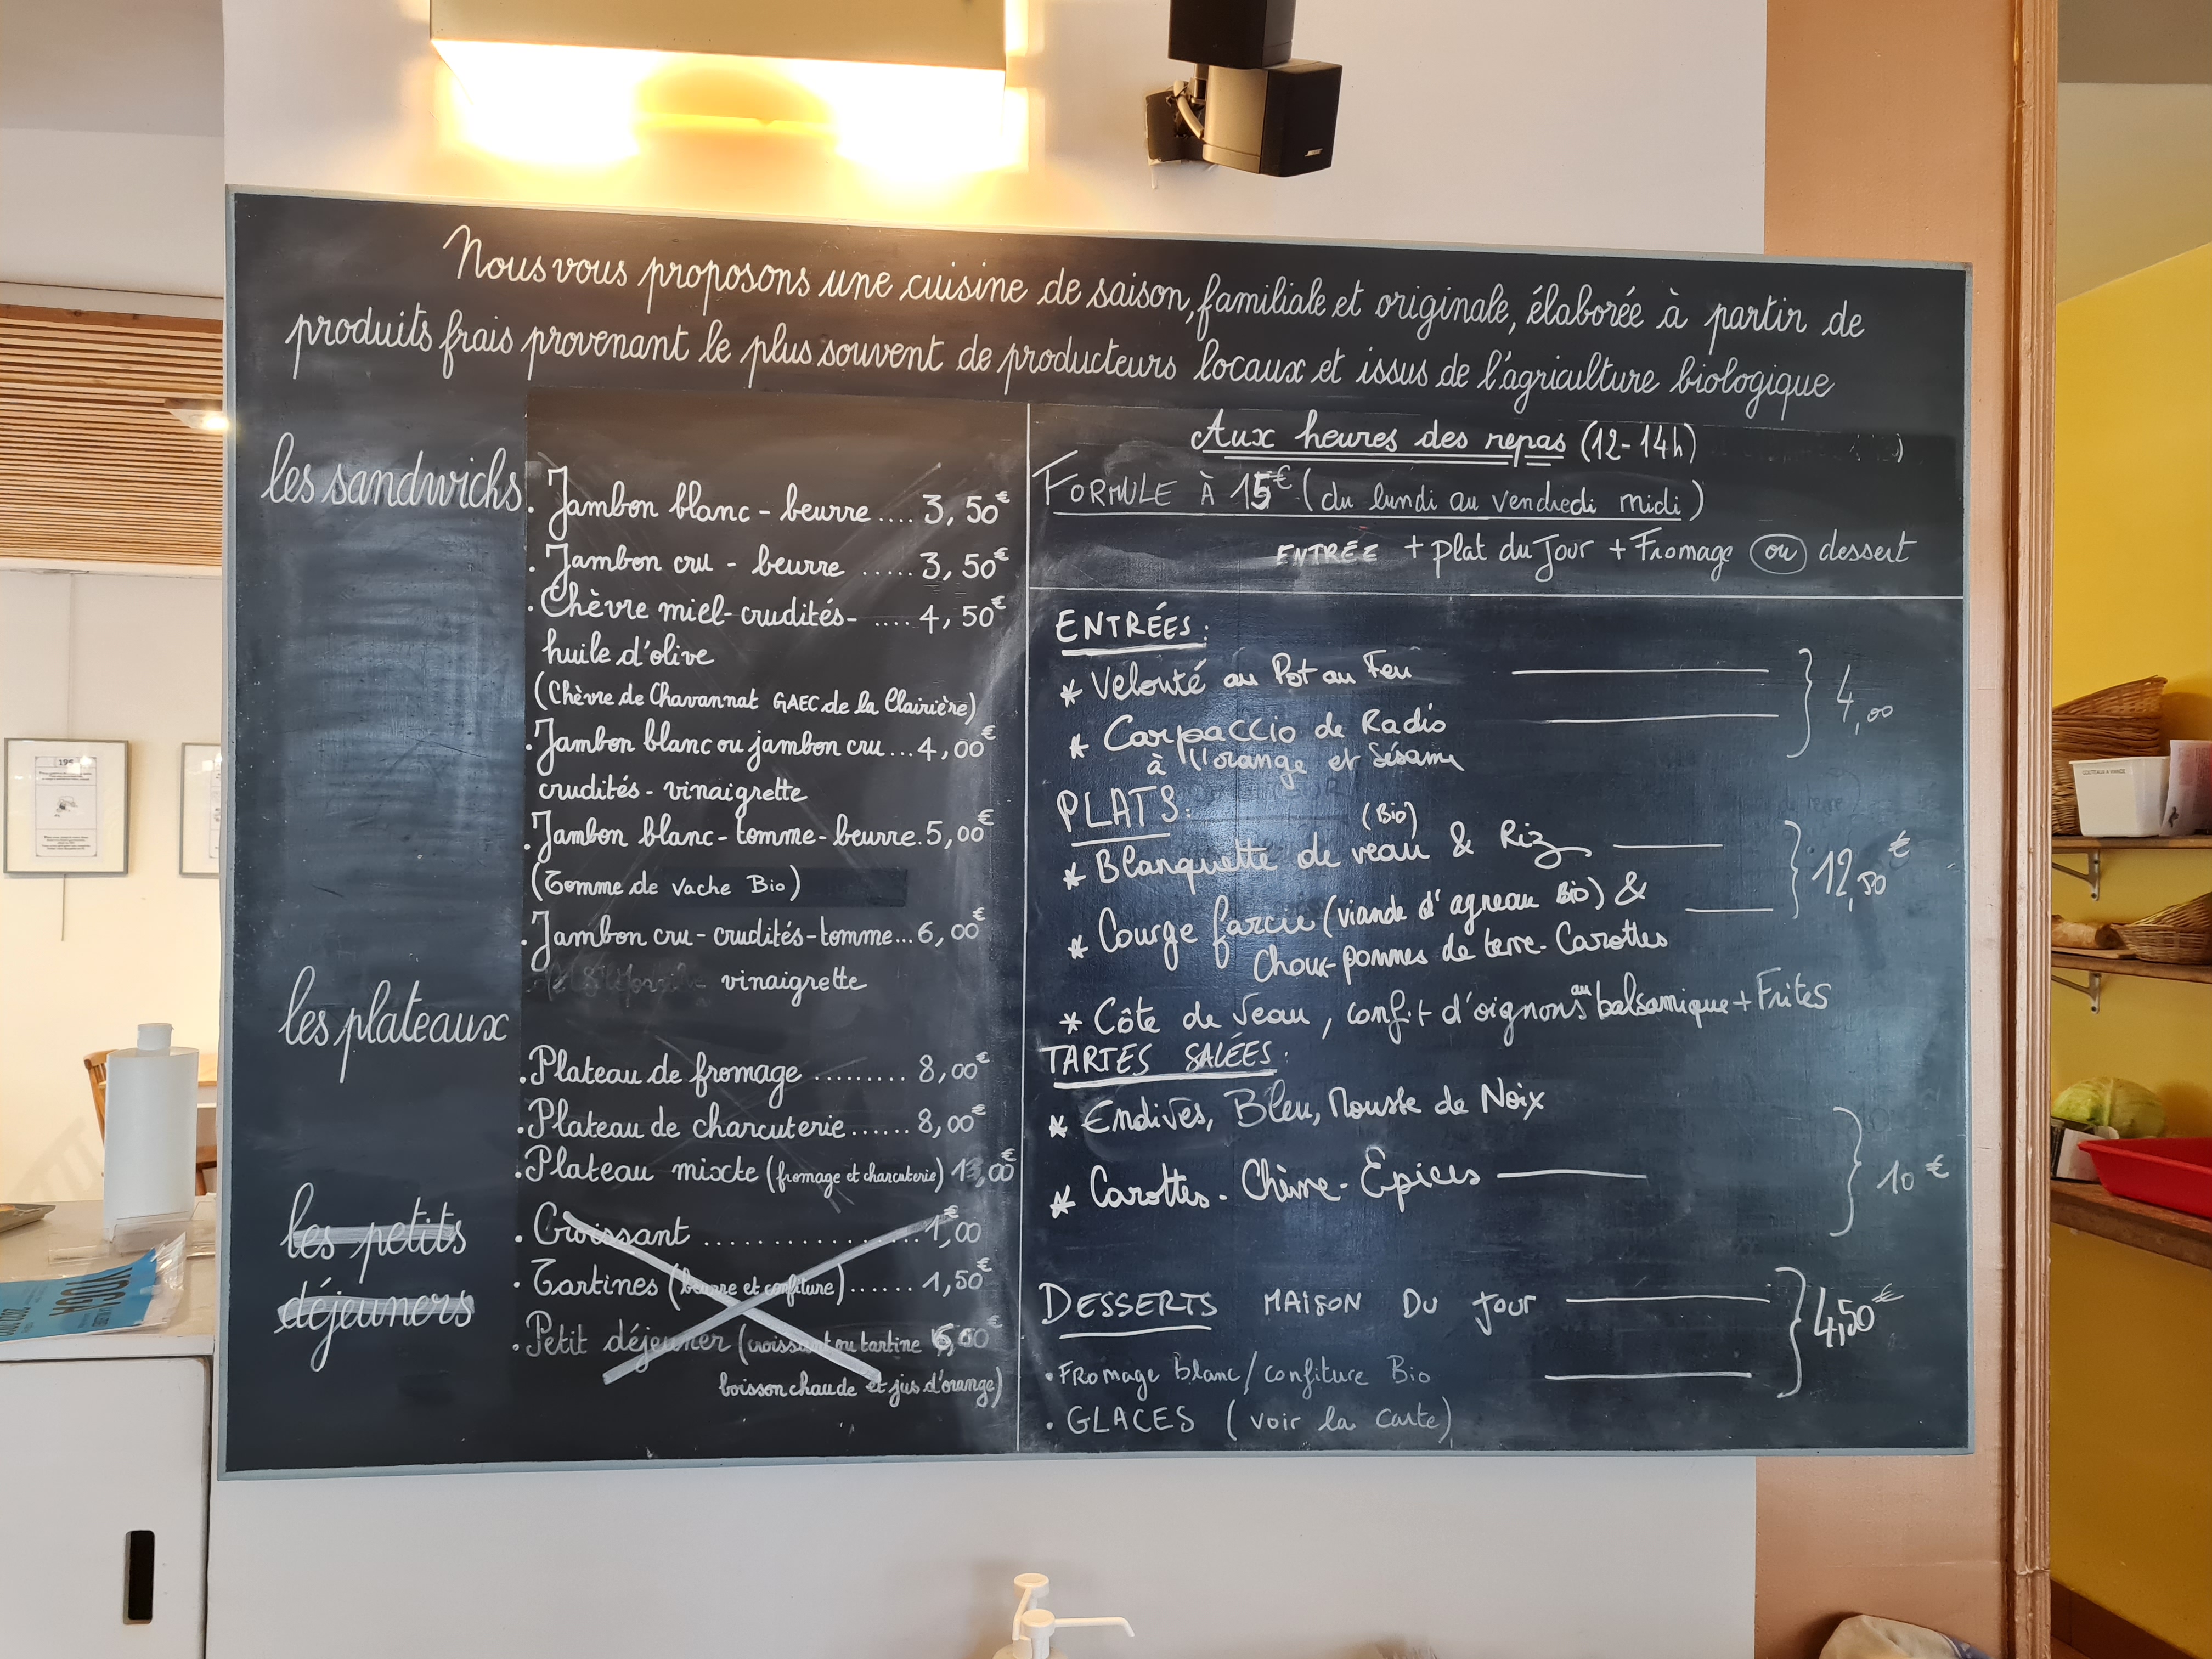 Nous vous proposons une cuisine de saison, familiale et originale, élaborée à partir de
produits frais provenant le plus souvent de producteurs locaux et issus de l'agriculture biologique
les sandwichs
. Jambon blanc - beurre .... 3,50€
. Jambon cru - beurre ..... 3,50€
. Chèvre miel - crudités - .... 4,50€
huile d'olive
(Chèvre de Chavannat GAEC de la Clairière)
. Jambon blanc ou jambon cru ... 4,00€
crudités - vinaigrette
. Jambon blanc - tomme - beurre . 5,00€
(Tomme de vache Bio)
. Jambon cru - crudités - tomme ... 6,00€
vinaigrette
les plateaux
. Plateau de fromage ......... 8,00€
. Plateau de charcuterie ...... 8,00€
. Plateau mixte (fromage et charcuterie) 13,00€
les petits
déjeuners
. Croissant .................. 1,00€
. Tartines (beurre et confiture) ...... 1,50€
. Petit déjeuner (croissant ou tartine
boisson chaude et jus d'orange)
Aux heures des repas (12-14h)
FORMULE À 15€ (du lundi au vendredi midi)
ENTRÉE + plat du Jour + Fromage ou dessert
ENTRÉES :
* Velouté au Pot au Feu
* Carpaccio de Radis
à l'orange et Sésame
4,00
PLATS :
(Bio)
* Blanquette de veau & Riz
* Courge farcie (viande d'agneau Bio) &
Choux-pommes de terre - Carottes
12,50€
* Côte de Veau, confit d'oignons au balsamique + Frites
TARTES SALÉES :
* Endives, Bleu, de Noix
* Carottes - Chèvre - Epices
10€
DESSERTS MAISON DU JOUR
4,50€
. Fromage blanc / confiture Bio
. GLACES (voir la carte)
COUTEAUX A VIANDE
YOGA